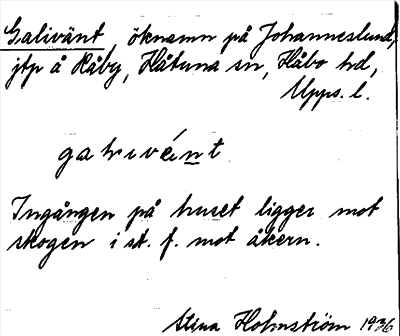 Galivänt, öknamn på Johanneslund,
jtp å Råby, Håtuna sn, Håbo hd,
Upps. l.
galivént
Ingången på huset ligger mot
skogen i st. f. mot åkern.
Stina Holmström 1936